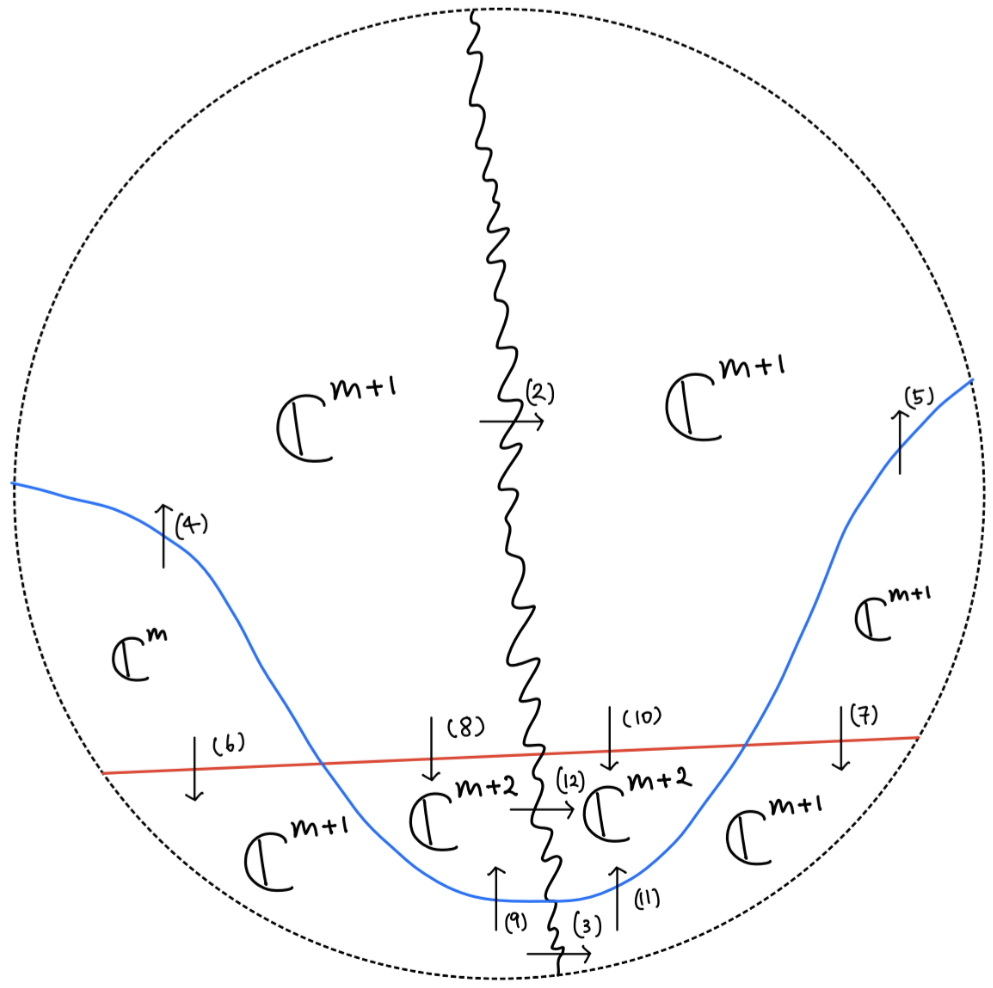 ℂ^{m+1}
(2)
ℂ^{m+1}
(5)
(4)
ℂ^m
ℂ^{m+1}
(6)
(8)
(10)
(7)
ℂ^{m+1}
ℂ^{m+2}
(12)
ℂ^{m+2}
ℂ^{m+1}
(9)
(3)
(11)